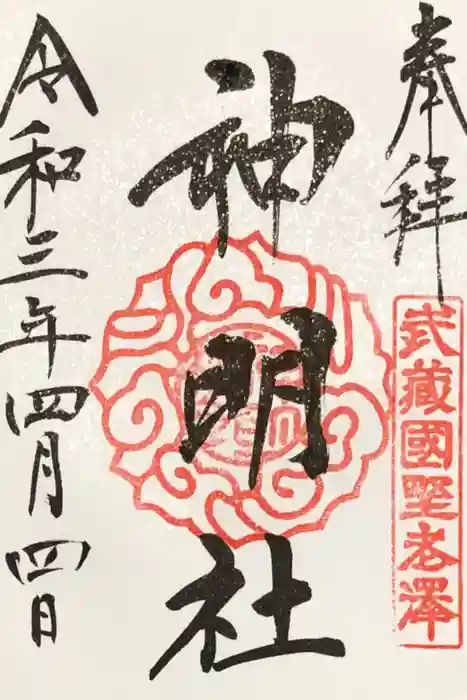 奉拝
武蔵國野老澤
神明社
令和三年四月四日